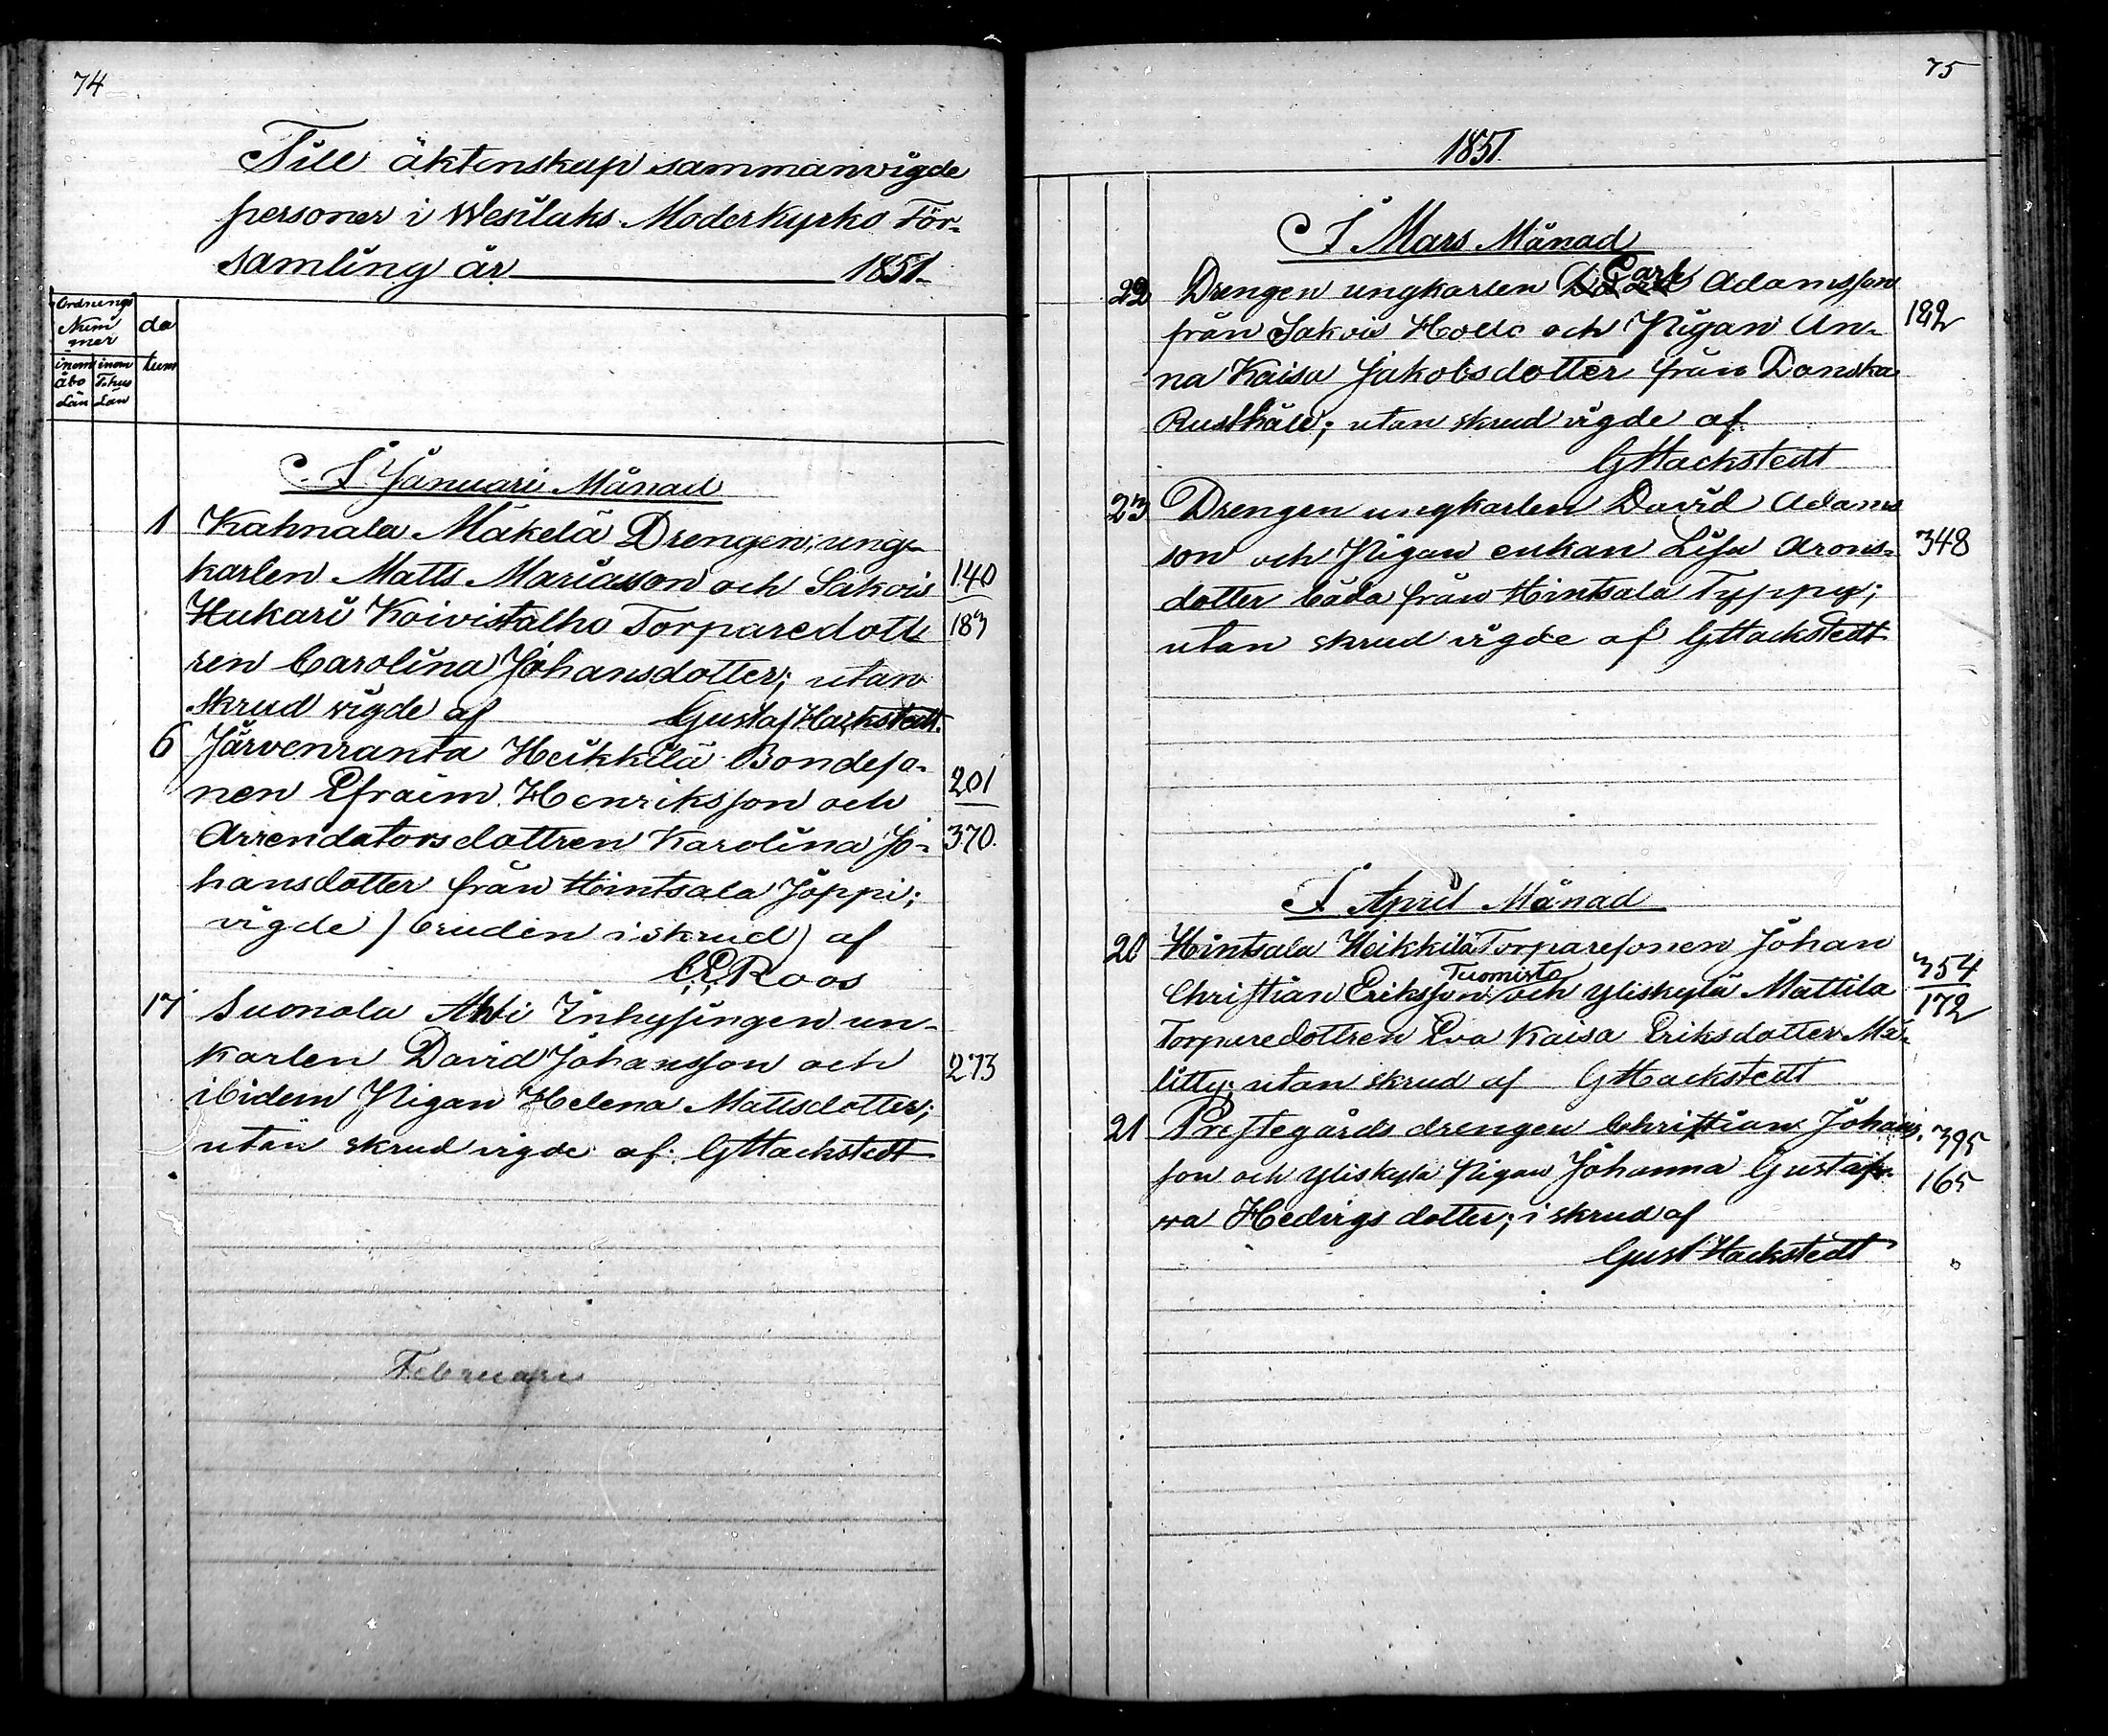 74
Till äktenskap sammanvigde
personer i Wesilaks Moderkyrko För-
samling år 1851.
Ordnings
Num
mer
da
tum
inom
åbo
Län
inom
T:hus
Län
I Januari Månad
1 Kahnala Mäkelä Drengen, ung-
karlen Matts Mariasson och Sakois 140
Hukari Koivistalho Torparedott 183
ren Carolina Johansdotter; utan
skrud vigde af Gustaf Hackstedt.
6 Järvenranta Heikkilä Bondeso-
nen Efraim Henriksson och 201
Arrendatorsdottren Karolina Jo- 370.
hansdotter från Hintsala Jöppi;
vigde / bruden i skrud) af
C.E. Roos
17 Suonola Ahti Inhysingen un-
karlen David Johansson och 273
ibidem Pigan Helena Mattsdotter;
utan skrud vigde af GHackstedt
Februari
75
1851.
I Mars Månad
22 Drengen ungkarlen Carl Adamsson
från Sakois Hollo och Pigan An- 182
na Kaisa Jakobsdotter från Danska
Rusthåll; utan skrud vigde af
GHackstedt
23 Drengen ungkarlen David Adams
son och Pigan enkan Lisa Arons- 348
dotter båda från Hintsala Typpy;
utan skrud vigde af GHackstedt
I April Månad
20 Hintsala Heikkilä Torparesonen Johan
Tuomisto
Christian Eriksson och Yliskylä Mattila 354
172
Torparedottren Eva Kaisa Eriksdotter Mä-
litty; utan skrud af GHackstedt
21 Prestegårds drengen Christian Johans- 395
son och Yliskylä Pigan Johanna Gustaf- 165
va Hedvigs dotter; i skrud af
Gust Hackstedt